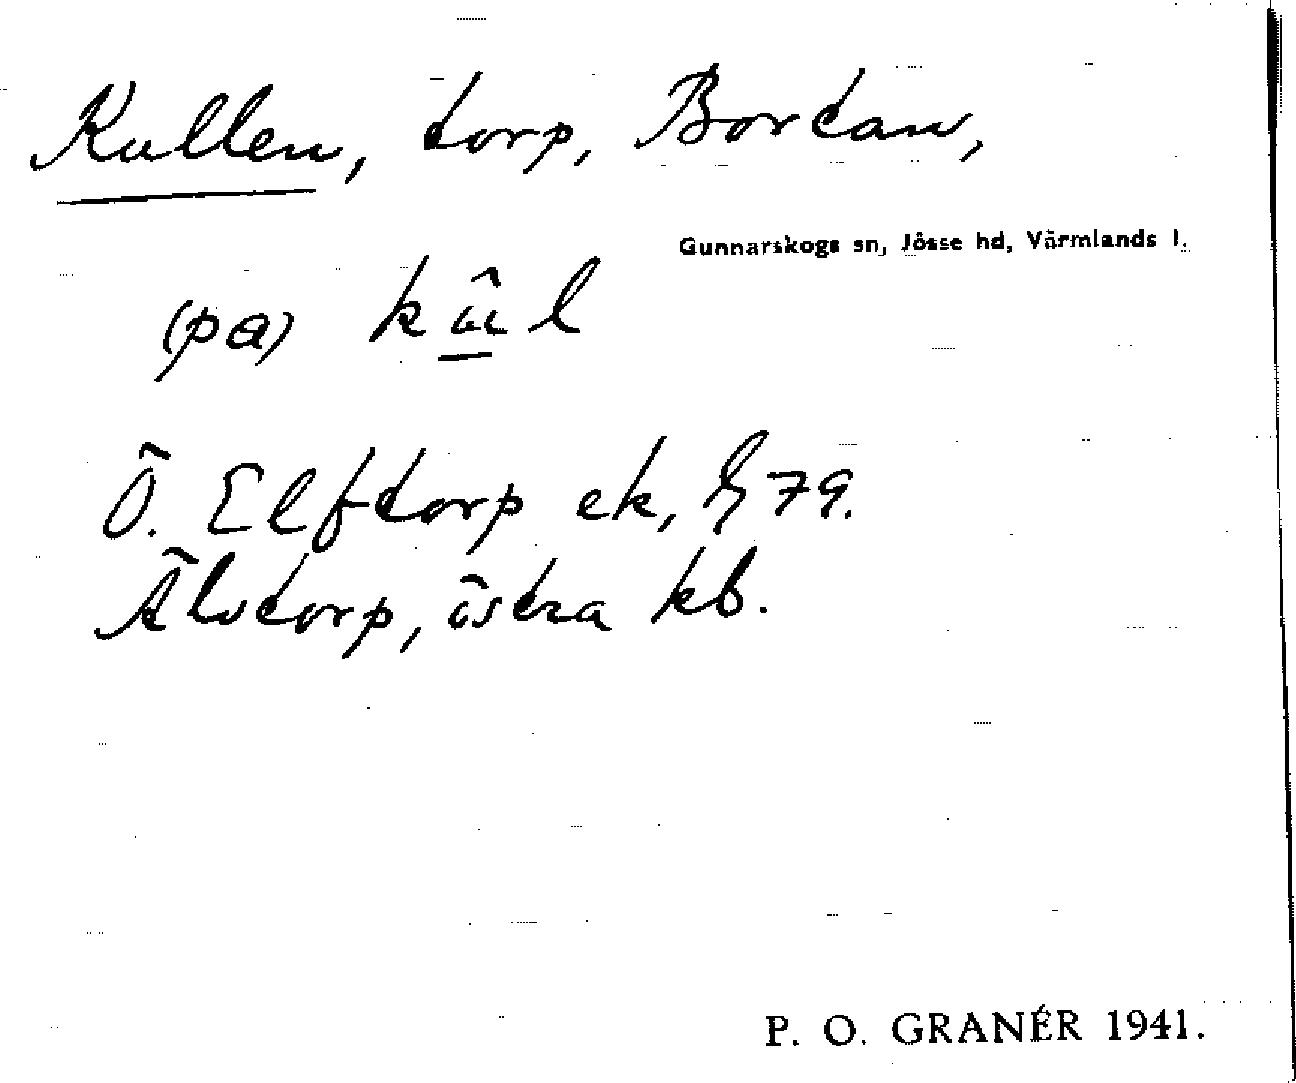 Kullen, torp, Bortan,
Gunnarskogs sn, Jösse hd, Värmlands l.
(pa) kûl
Ö. Elftorp ek, § 79.
Älvtorp, östra kb.
P. O. GRANÉR 1941.